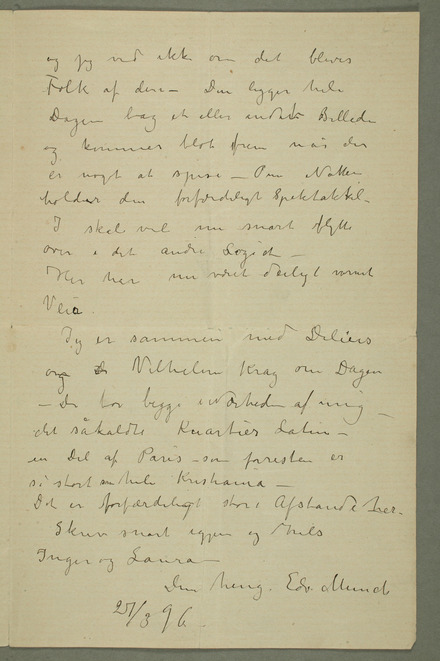 og jeg ved ikke om det blives
Folk af den – Den ligger hele
Dagen bag et eller andet Billede
og kommer blot frem når der
er nogt at spise – Om Natten
holder den forfærdeligt Spektakkel –
I skal vel nu snart flytte
over i det andre Logiet –
Her har nu været deiligt varmt
Veir.
Jeg er sammen med Delius
og Vilhelm Krag om Dagen
– De bor begge i Nærheden af mig –
det såkaldte Kvartier Latin –
en Del af Paris – som forresten er
så stort som hele Kristiania –
Det er forfærdeligt store Afstande her –
Skriv snart igjen og hils
Inger og Laura –
Din heng. Edv. Munch
/3 96